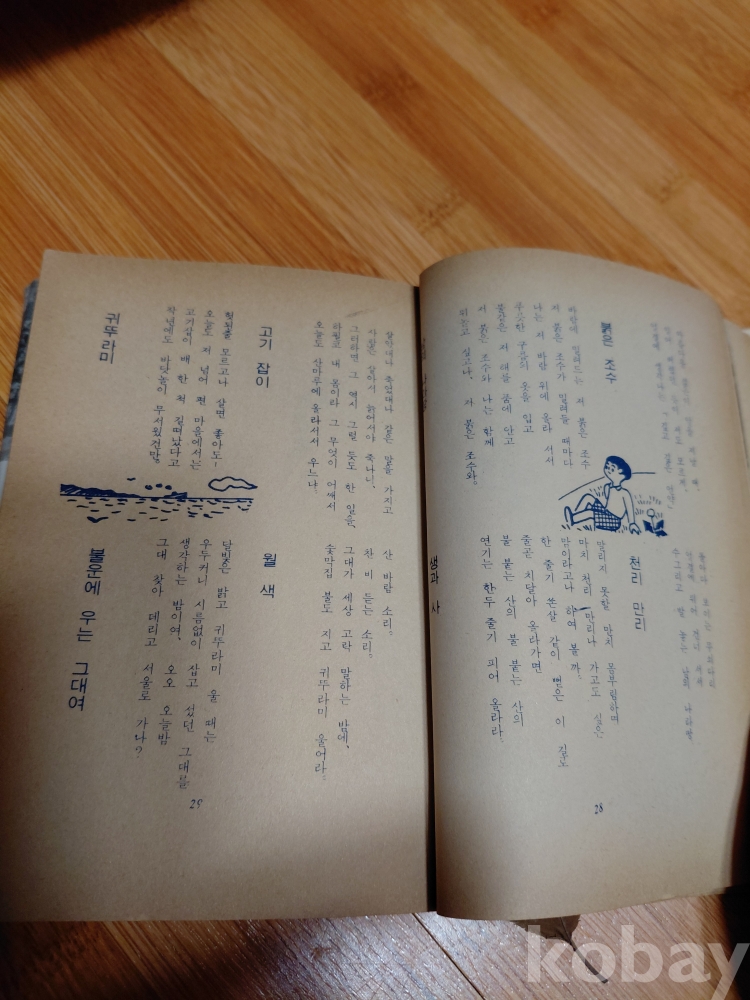 붉은 조수
바람에 밀려드는 저 붉은 조수
저 붉은 조수가 밀려들 때마다
나는 저 바람 위에 올라 서서
푸릇한 구름의 옷을 입고
불같은 저 해를 품에 안고
저 붉은 조수와 나는 함께
뛰놀고 싶고나, 저 붉은 조수와.
천리 만리
말리지 못할 만치 몸부림하며
마치 천리 만리나 가고도 싶은
맘이라고나 하여 볼까.
한 줄기 쏜살 같이 뻗은 이 길로
줄곧 치달아 올라가면
불 붙는 산의 불 붙는 산의
연기는 한두 줄기 피어 올라라.
28
생과 사
살았대나 죽었대나 같은 말을 가지고
사람은 살아서 늙어서야 죽나니,
그러하면 그 역시 그럴 듯도 한 일을,
하필코 내 몸이라 그 무엇이 어째서
오늘도 산마루에 올라서서 우느냐.
고기 잡이
모르고나 살면 좋아도!
오늘도 저 넘어 편 마을에서는
고기잡이 배 한 척 길떠났다고
작년에도 바닷놀이 무서웠건만.
귀뚜라미
산 바람 소리.
찬 비 듣는 소리.
그대가 세상 고락 말하는 밤에,
숫막집 불도 지고 귀뚜라미 울어라.
월 색
달빛은 밝고 귀뚜라미 울 때는
우두커니 시름없이 잡고 섰던 그대를
생각하는 밤이여, 오오 오늘밤
그대 찾아 데리고 서울로 가나?
불운에 우는 그대여
29
kobay